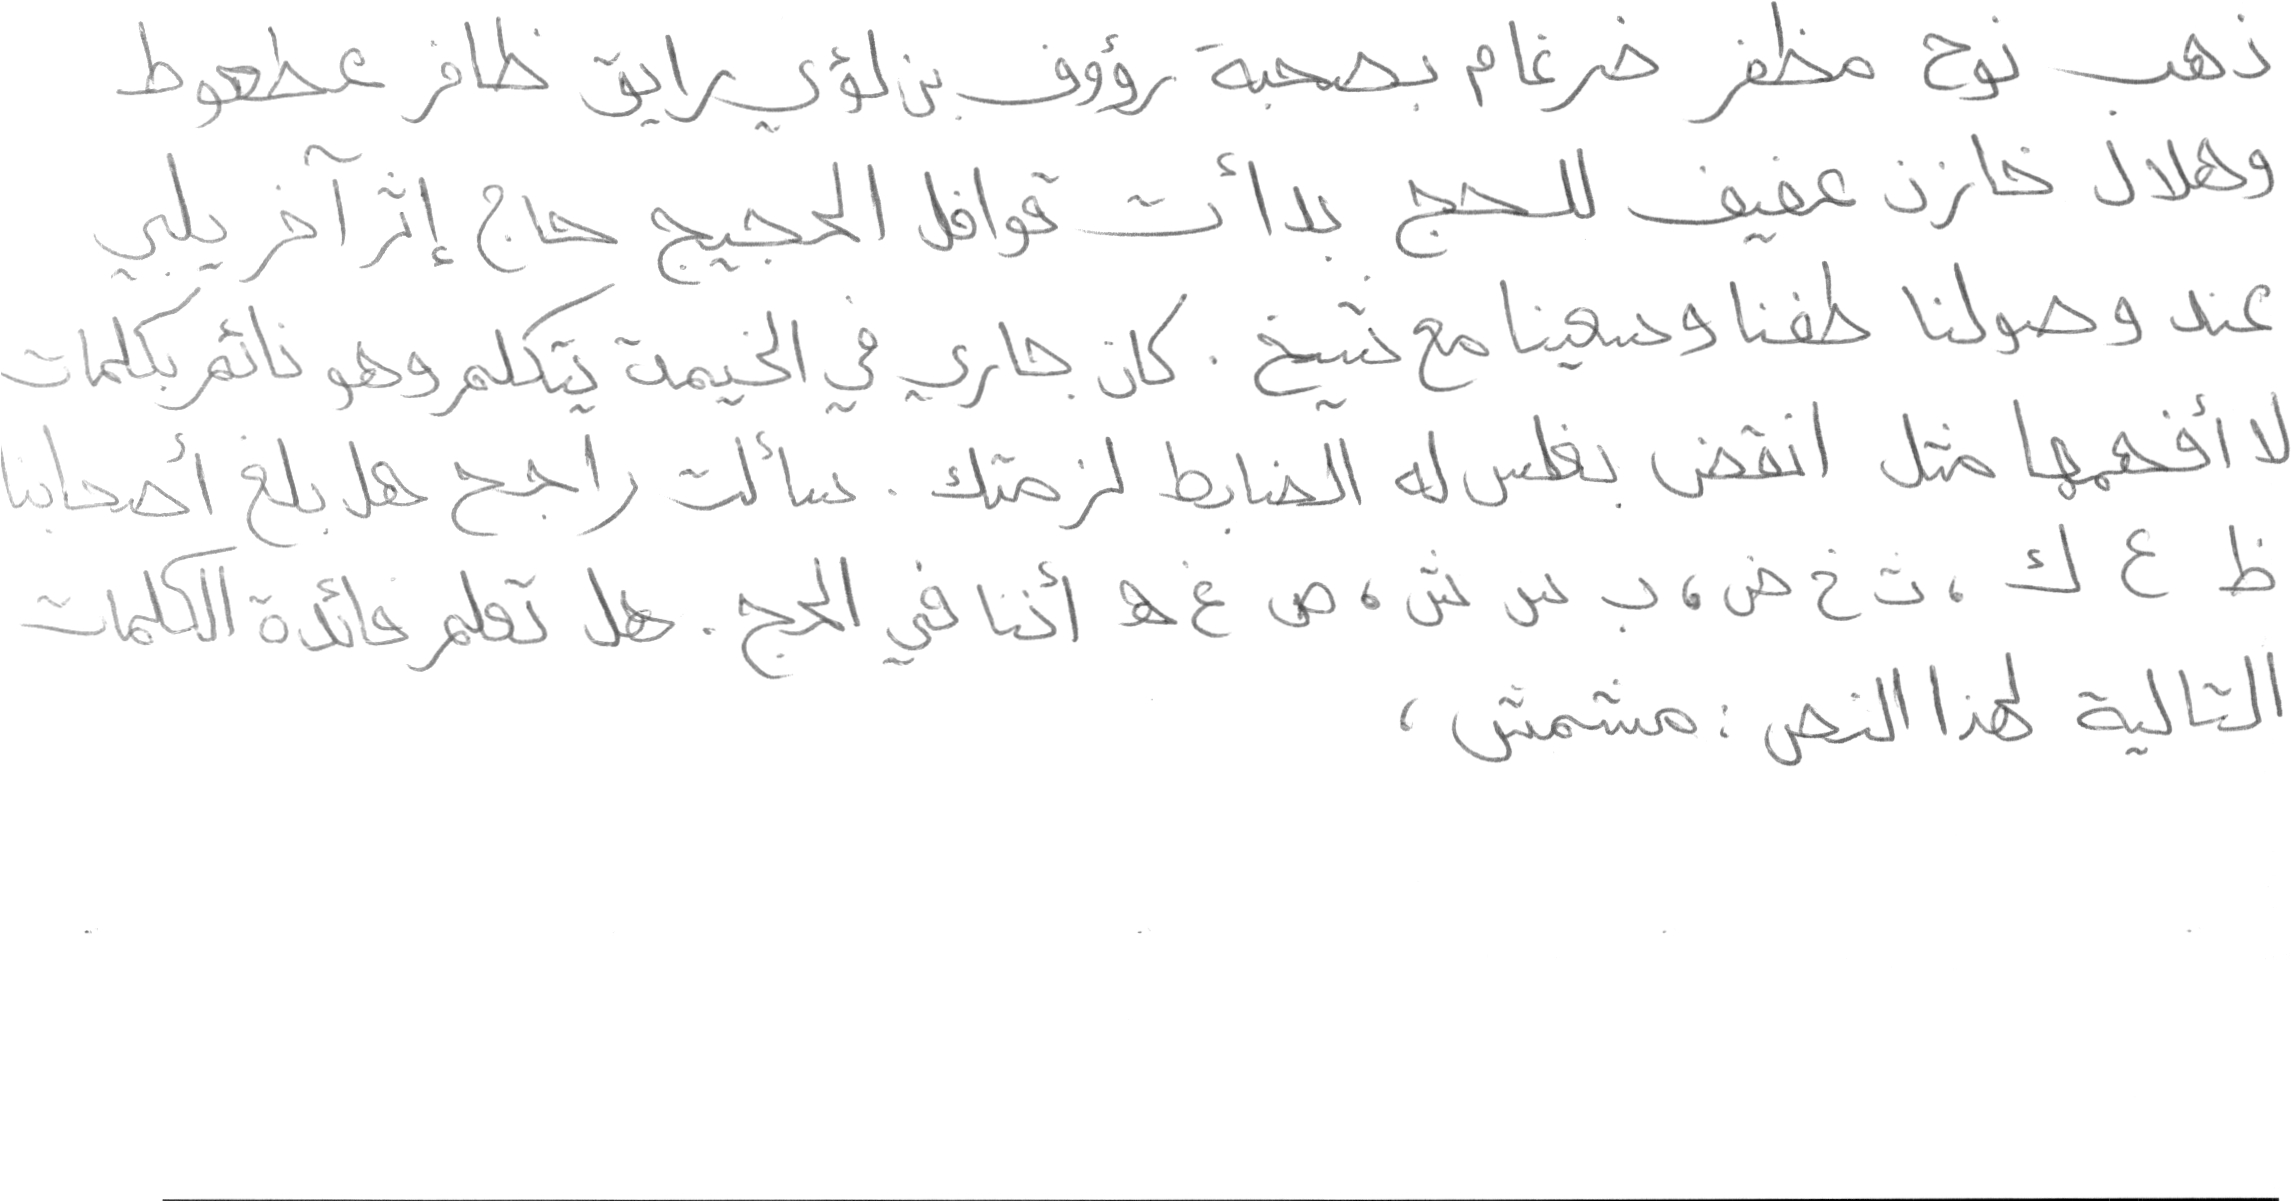 ذهب نوح مظفر ضرغام بصحبة رؤوف بن لؤي رايق ظافر عطعوط
وهلال خازن عفيف للحج بدأت قوافل الحجيج حاج إثر آخر يلبي
عند وصولنا طفنا وسعينا مع شيخ . كان جاري في الخيمة يتكلم وهو نائم بكلمات
لا أفهمها مثل انقض بغلس له الضابط لزمتك . سألت راجح هل بلغ أصحابنا
ظ ع ك ، ث خ ض ، ب س ش ، ص غ هـ أننا في الحج . هل تعلم فائدة الكلمات
التالية لهذا النص : مشمش ،